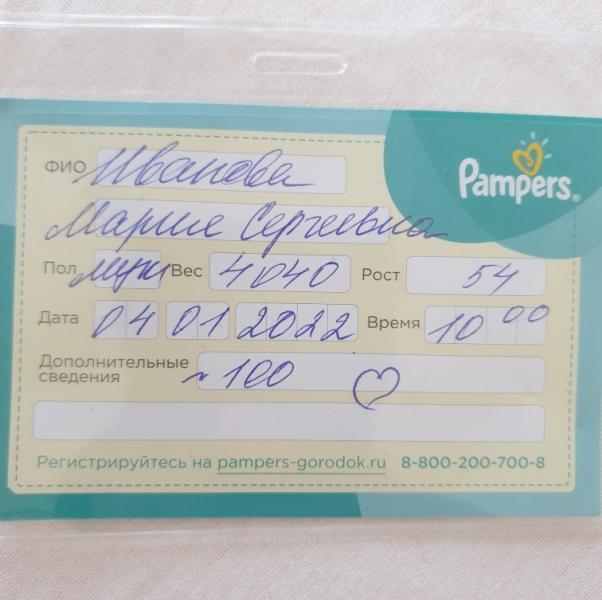 Pampers®
ФИО Иванова
Мария Сергеевна
Пол муж Вес 4040 Рост 54
Дата 04 01 2022 Время 10 00
Дополнительные сведения ~ 100
Регистрируйтесь на pampers-gorodok.ru 8-800-200-700-8